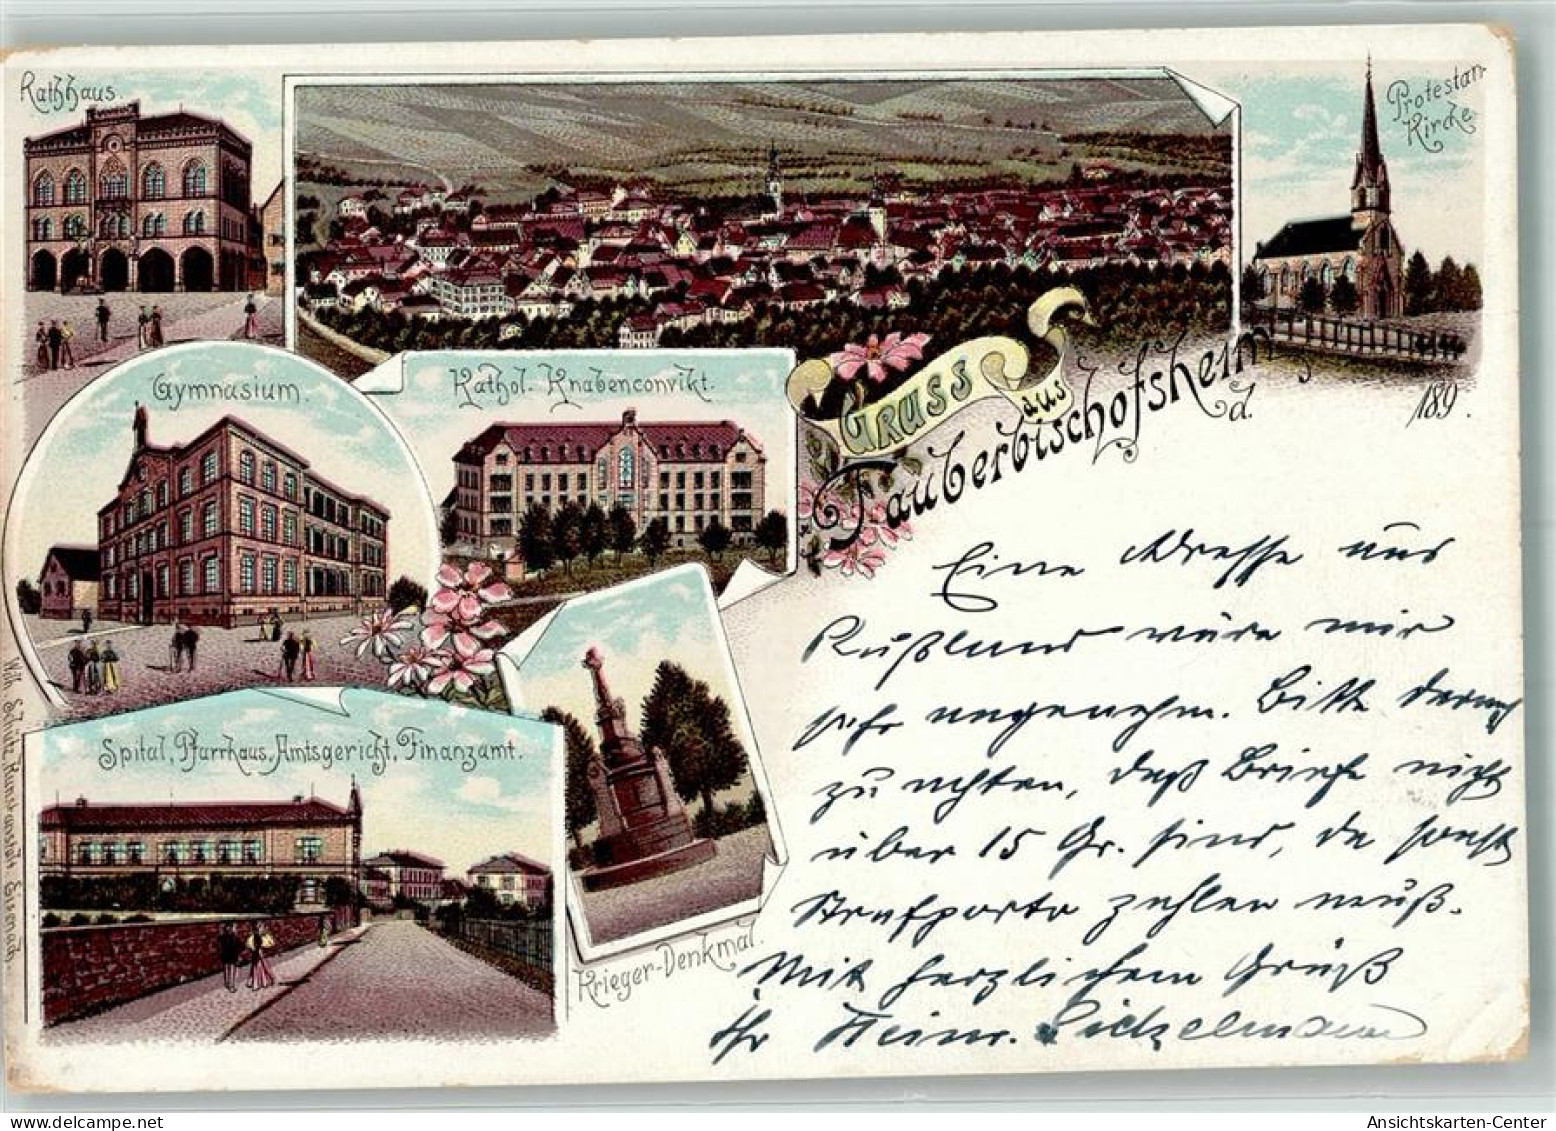 Rathhaus.
Protestan
Kirche
Gymnasium.
Kathol. Knabenconvikt.
GRUSS
aus
Tauberbischofsheim
d. 189 .
Spital, Pfarrhaus, Amtsgericht, Finanzamt.
Krieger-Denkmal.
Wilh. Schütz, Kunstanstalt, Eisenach.
Eine Adresse aus
Rußland wäre mir
sehr angenehm. Bitte darauf
zu achten, daß Briefe nicht
über 15 Gr. sind, da sonst
Strafporto zahlen muß.
Mit herzlichem Gruß
Ihr Heinr.
Ansichtskarten-Center